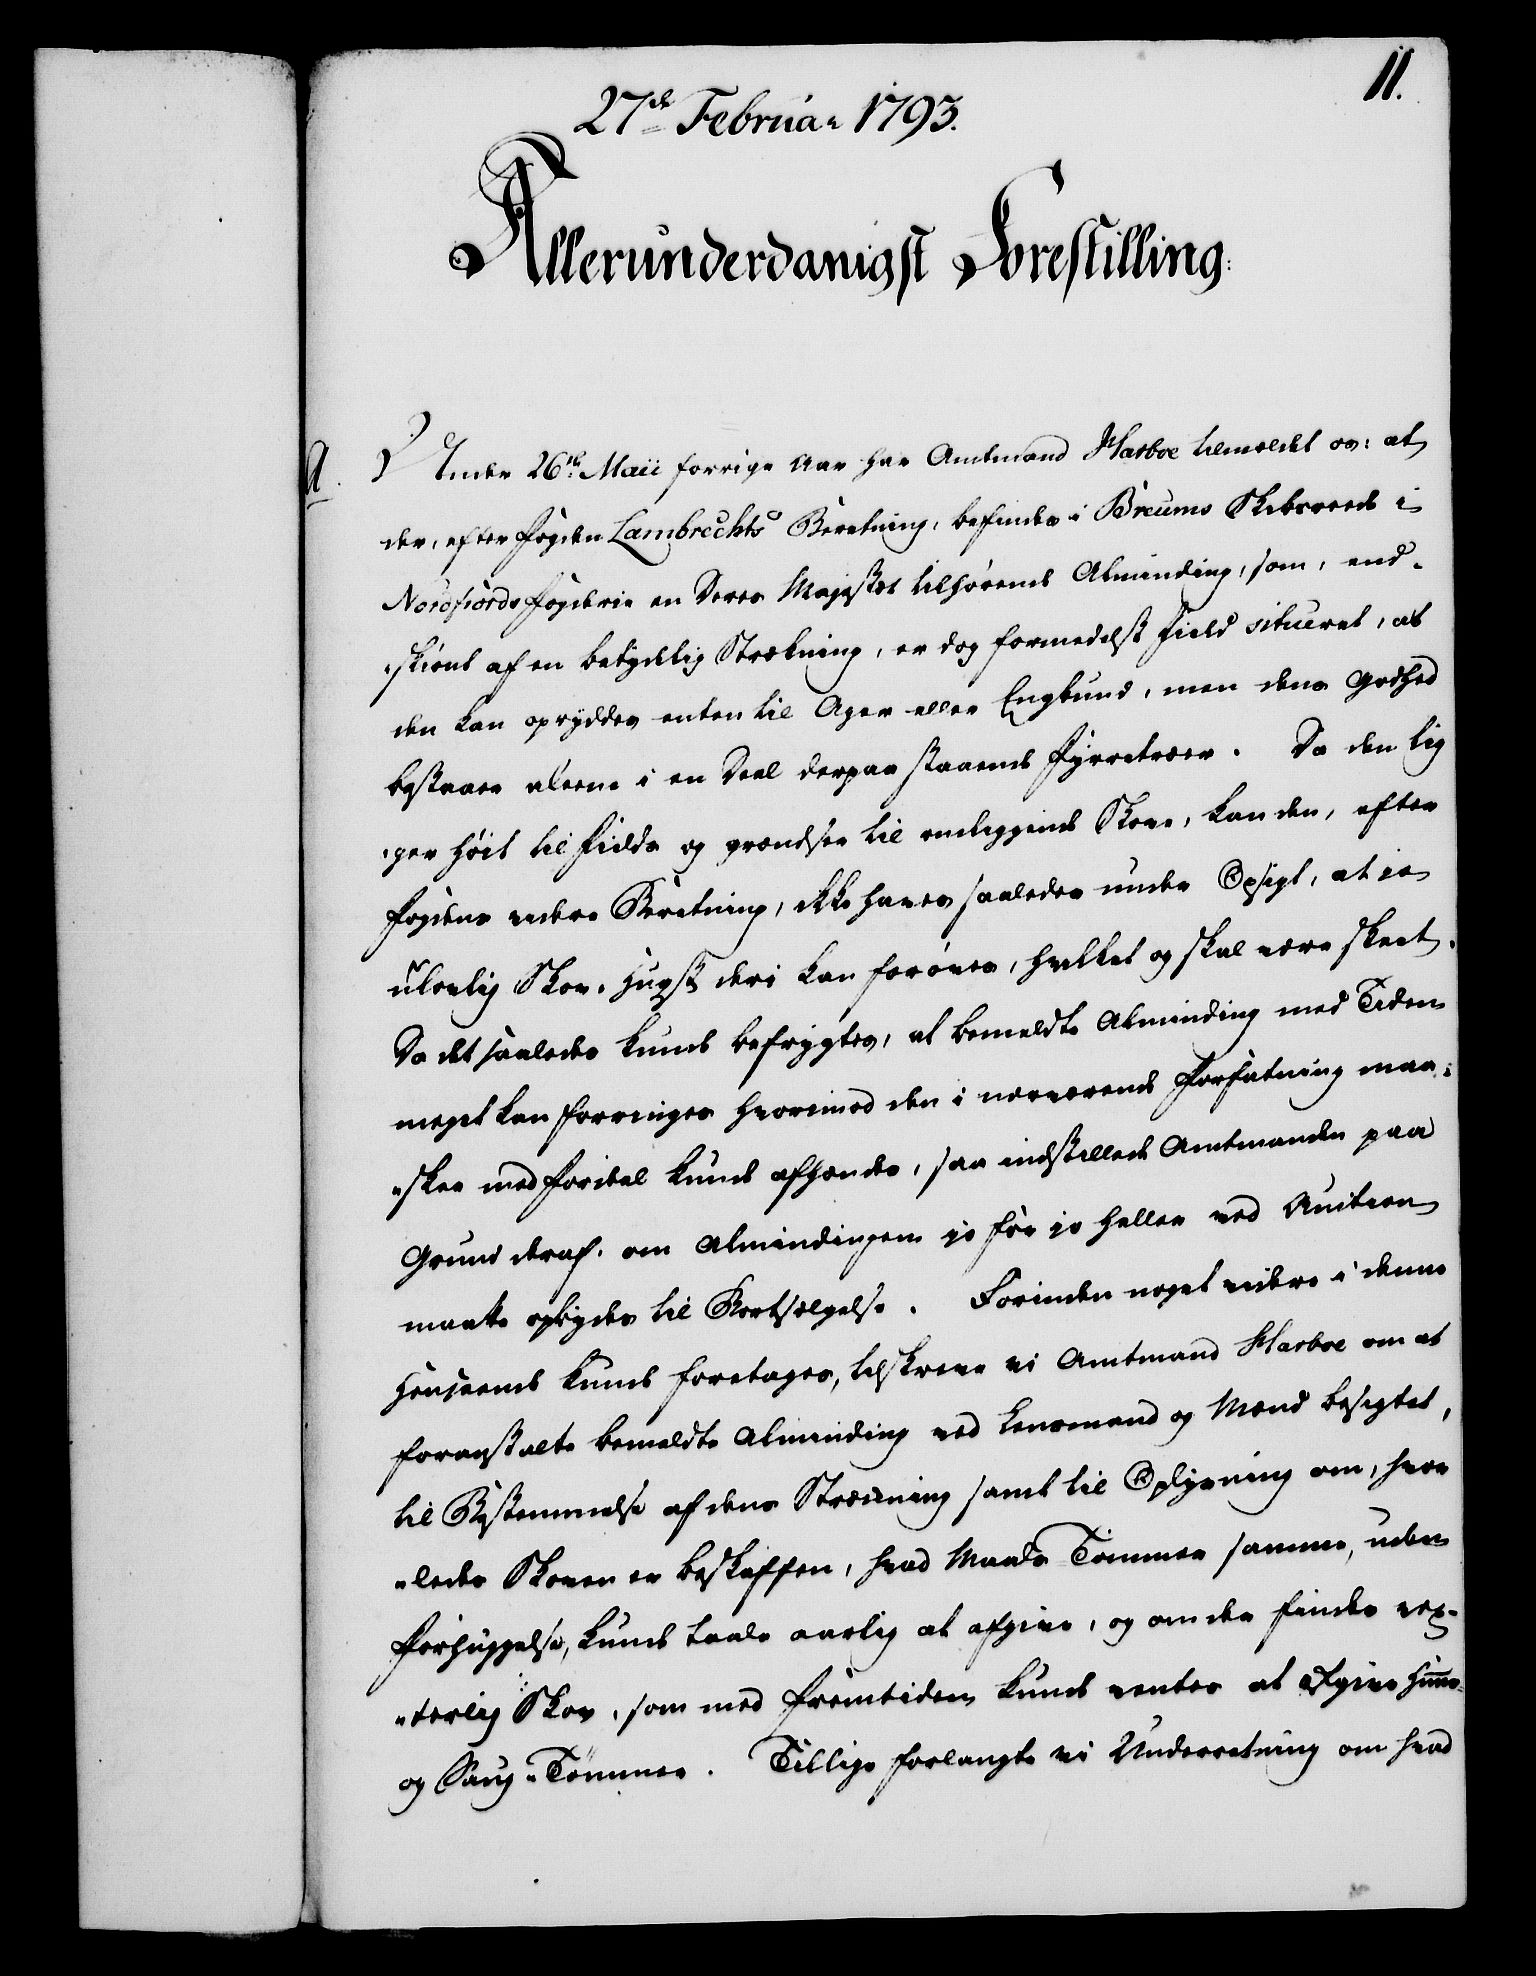 11.
27de Februar 1793.
Allerunderdanigst Forestilling:
A.
Under 26de Maii forrige Aar har Amtmand Hasboe tilmeldt os: at
der, efter Fogden Lambrechts Beretning, befindes i Breums Skibreede i
Nordfiords Fogderie en Deres Majestæt tilhørende Alminding, som, end-
skiønt af en betydelig Strækning, er dog formedelst Field situeret, at
den kan opryddes enten til Ager eller Engbund, men dens Godhed
bestaaer alene i en Deel derpaa staaende Fyrretræer. Da den lig-
ger høit til Fields og grændser til omliggende Skove, kan den, efter
Fogdens videre Beretning, ikke haves saaledes under Opsigt, at jo
ulovlig Skov-Hugst deri kan forøves, hvilket og skal være skeet.
Da det saaledes kunde befrygtes, at bemeldte Alminding med Tiden
meget kan forringes hvorimod den i nærværende Forfatning maa-
skee med Fordeel kunde afhændes, saa indstillede Amtmanden paa
Grund deraf. om Almindingen jo før jo heller ved Auction
maatte opbydes til Bortsælgelse. Forinden noget videre i denne
Henseende kunde foretages, tilskreve vi Amtmand Hasboe om at
foranstalte bemeldte Alminding ved Lensmand og Mænd besigtet,
til Bestemmelse af dens Strækning samt til Oplysning om, hvor-
ledes Skoven er beskaffen, hvad Maals Tømmer samme, uden
Forhuggelse, kunde taale aarlig at afgive, og om der findes vox-
terlig Skov, som med Fremtiden kunde ventes at afgive Huus-
og Saug-Tømmer. Tillige forlangte vi Underretning om hvad